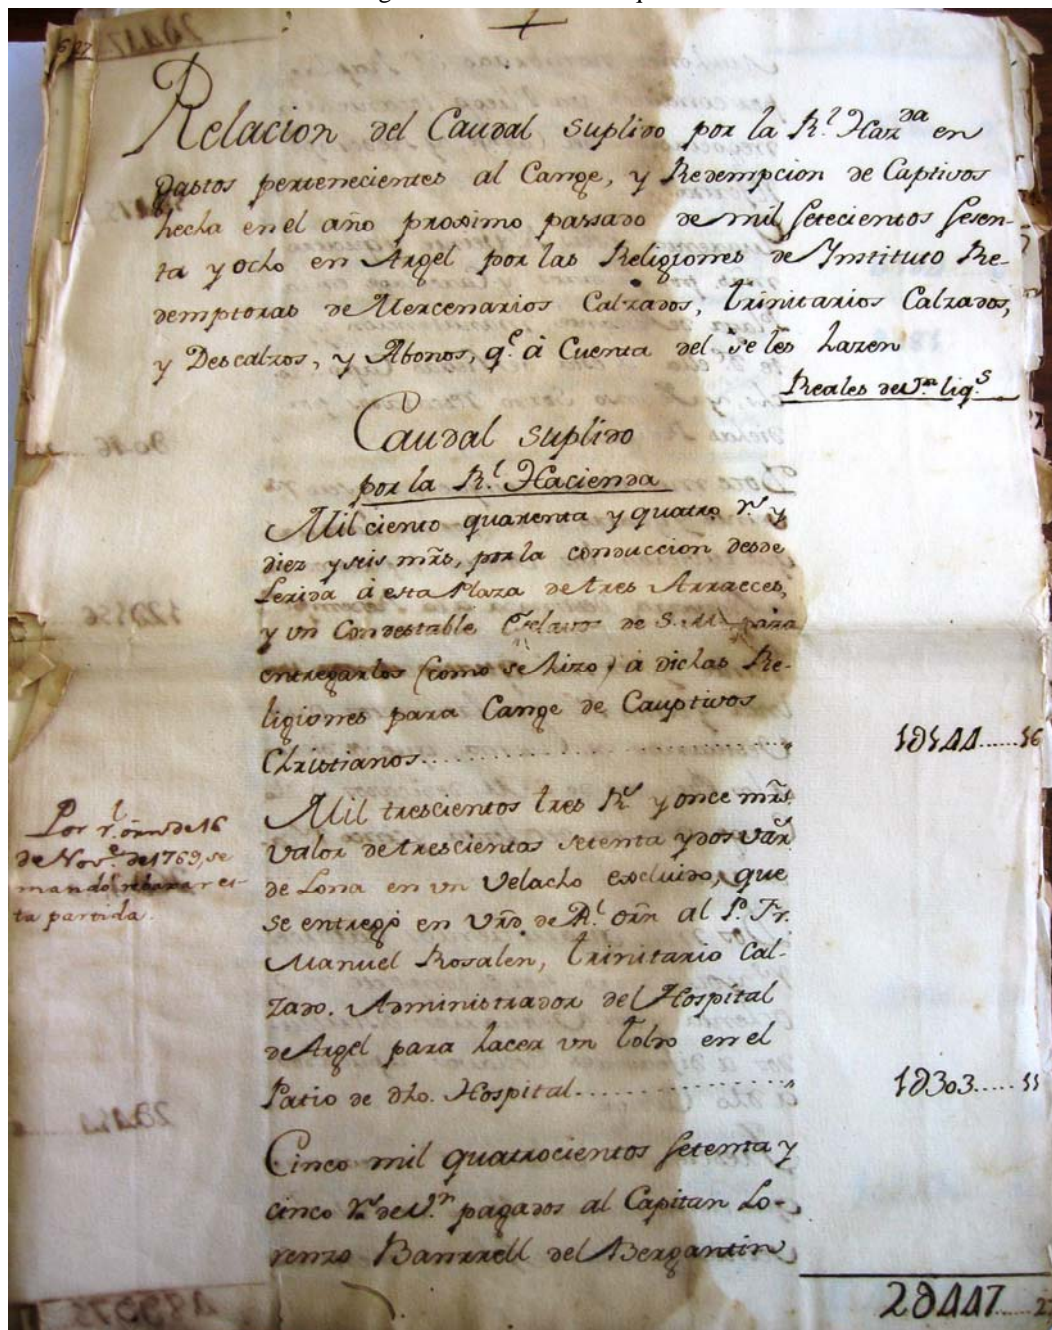 Relacion del Caudal suplido por la R.l Haz.da en
gastos pertenecientes al Cange, y Redempcion de Captivos
hecha en el año proximo passado de mil setecientos sesen-
ta y ocho en Argel por las Religiones de Instituto Re-
demptoras de Mercenarios Calzados, Trinitarios Calzados,
y Descalzos, y Abonos, q.e à Cuenta del se les hazen
Reales de V.n liq.s
Caudal suplido
por la R.l Hacienda
Mil ciento quarenta y quatro r.s y
diez y seis mrs, por la conduccion desde
Lerida à esta Plaza de tres Arraeces,
y un Condestable Esclavos de S. M. para
entregarlos (como se hizo) à dichas Re-
ligiones para Cange de Cauptivos
Christianos.............. 1d144......16
Por r.l orn de 16
de Nov.e de 1769, se
mandó rebaxar es-
ta partida.
Mil trescientos tres R.s y once mrs.
valor de trescientas setenta y dos var.s
de Lona en un Velacho excluido, que
se entregò en vrd. de R.l orn al P. Fr.
Manuel Rosalen, Trinitario Cal-
zado. Administrador del Hospital
de Argel para hacer un toldo en el
Patio de dho. Hospital.............. 1d303.....11
Cinco mil quatrocientos setenta y
cinco r.s de V.n pagados al Capitan Lo-
renzo del Bergantin
2d447......2